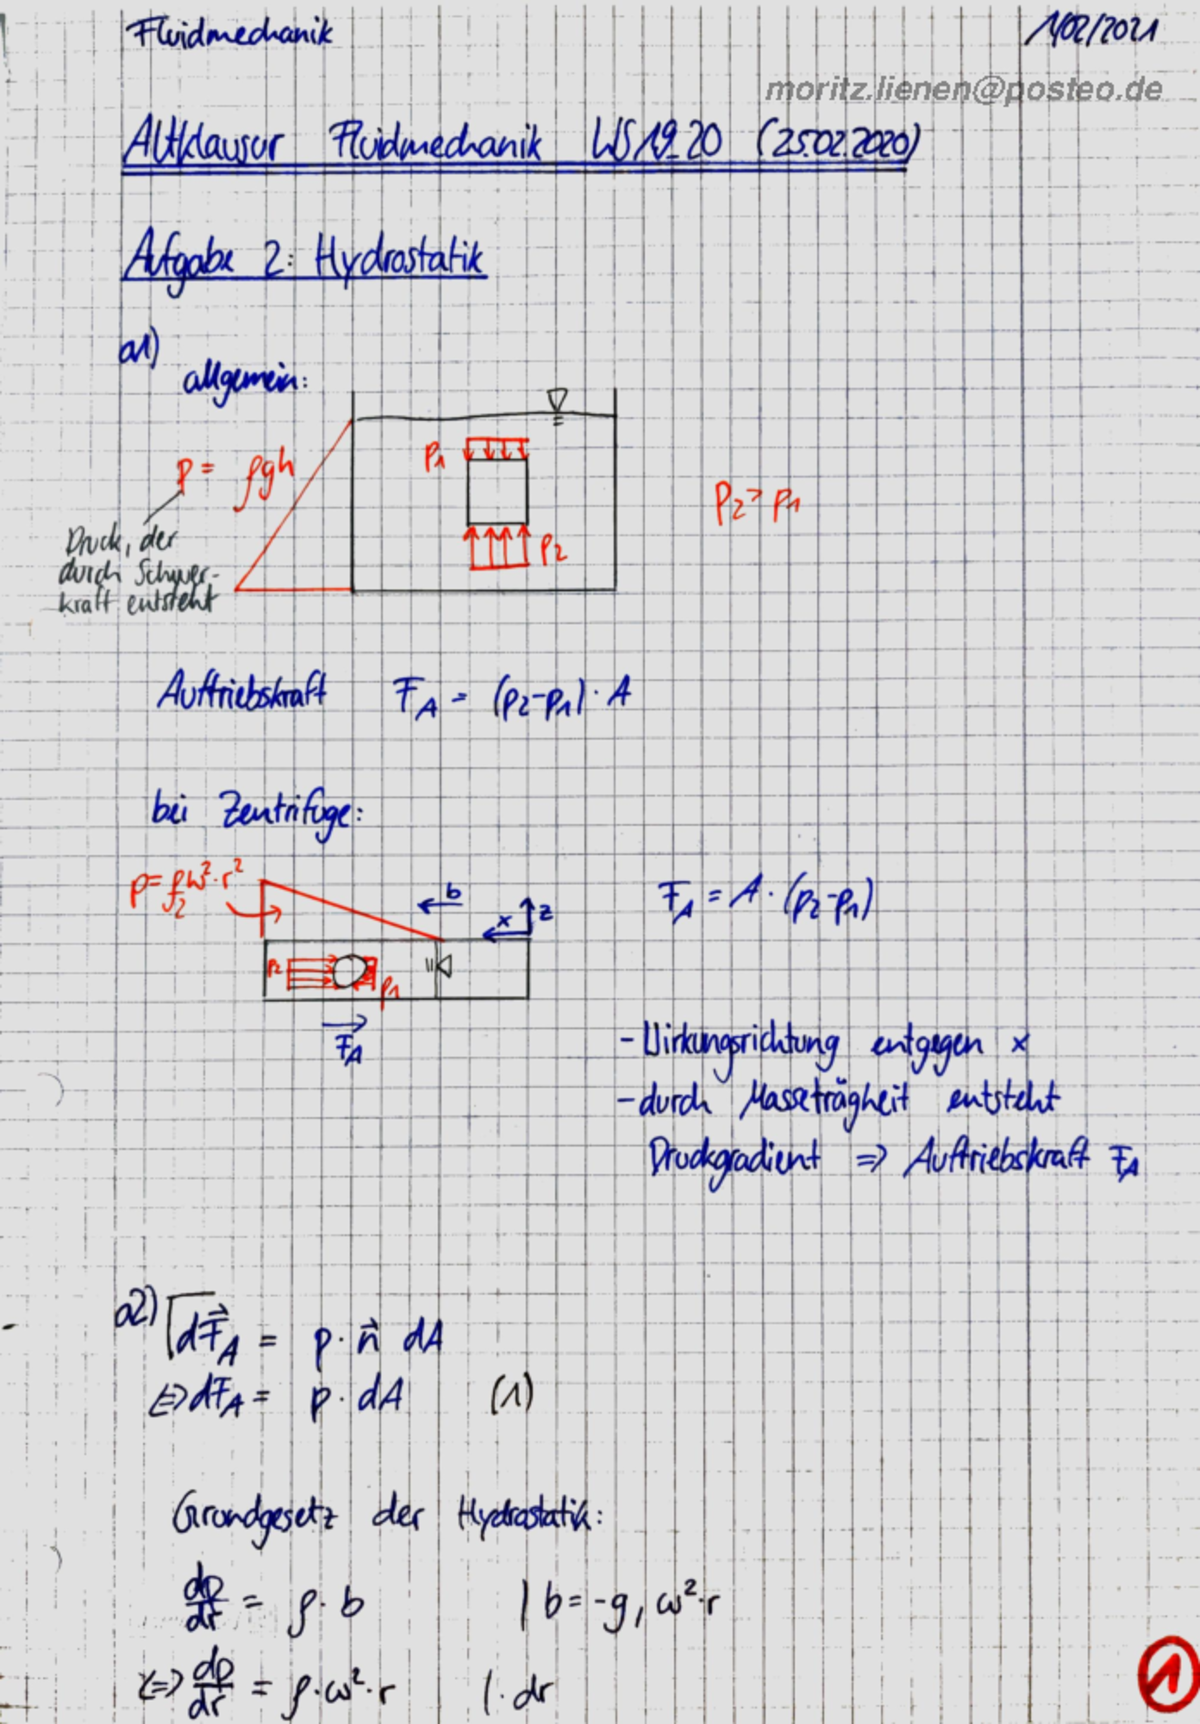 Fluidmechanik 1/02/2021
moritz.lienen@posteo.de
Altklausur Fluidmechanik WS19_20 (25.02.2020)
Aufgabe 2: Hydrostatik
a1)
allgemein:
p = ρgh
p1
p2
p2 > p1
Druck, der
durch Schwer-
kraft entsteht
Auftriebskraft F_A = (p2-p1) · A
bei Zentrifuge:
p = ρ/2 ω² · r²
b
x
z
p2
p1
F_A = A · (p2-p1)
F_A
- Wirkungsrichtung entgegen x
- durch Masseträgheit entsteht
Druckgradient => Auftriebskraft F_A
a2) dF⃗_A = p · n⃗ dA
<=> dF_A = p · dA (1)
Grundgesetz der Hydrostatik:
dp/dr = ρ · b | b = -g, ω² · r
<=> dp/dr = ρ · ω² · r | · dr
1